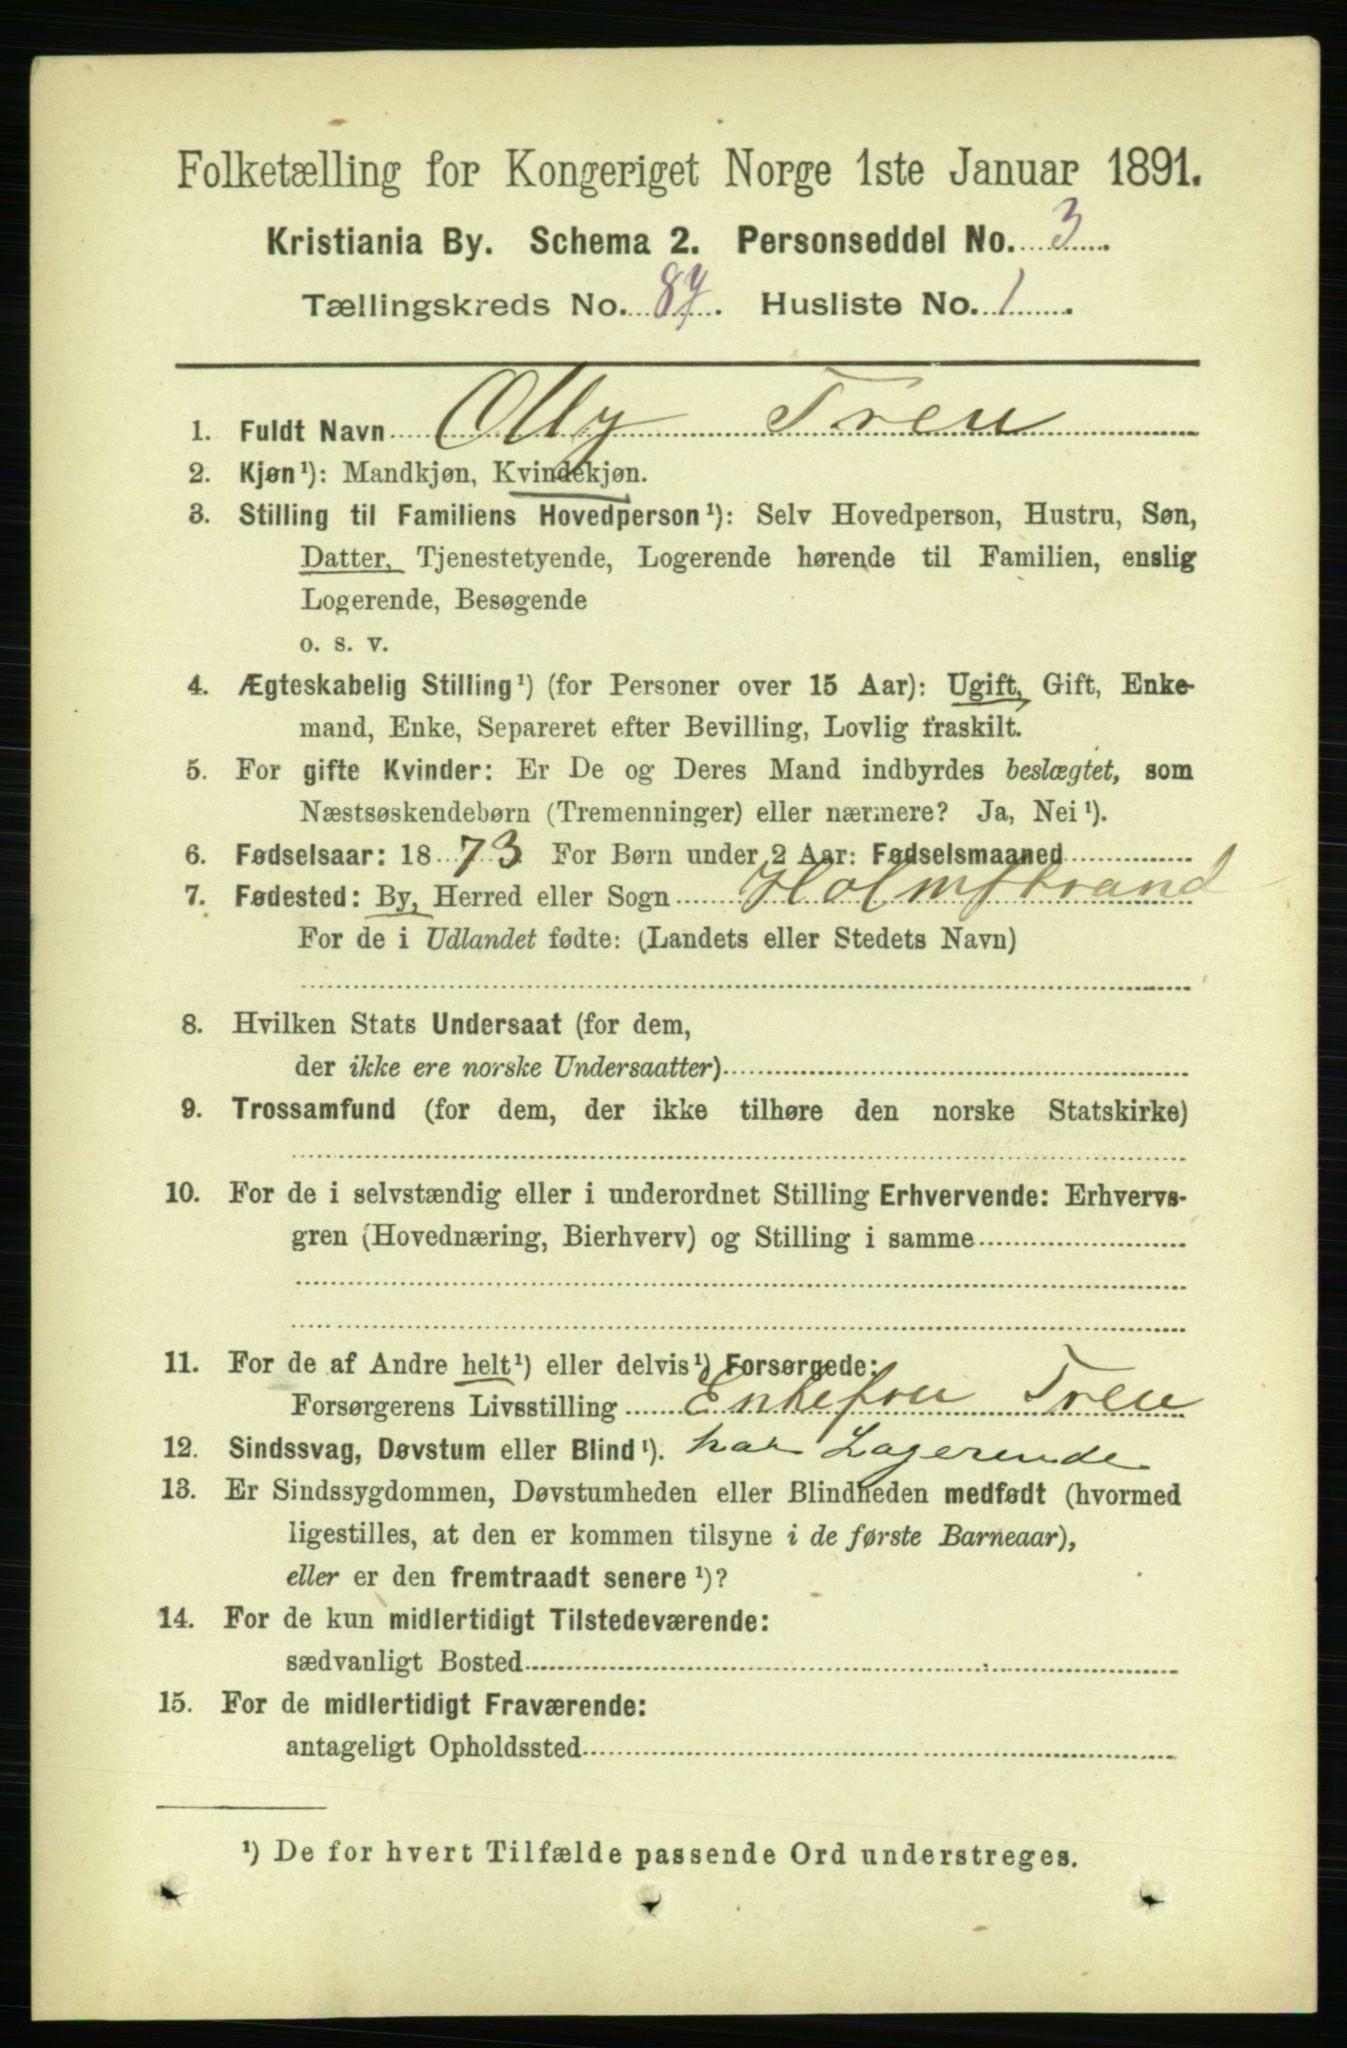 Folketælling for Kongeriget Norge 1ste Januar 1891.
Kristiania By. Schema 2. Personseddel No. 3.
Tællingskreds No. 87. Husliste No. 1.
1. Fuldt Navn Olly Treu
2. Kjøn¹): Mandkjøn, Kvindekjøn.
3. Stilling til Familiens Hovedperson¹): Selv Hovedperson, Hustru, Søn,
Datter, Tjenestetyende, Logerende hørende til Familien, enslig
Logerende, Besøgende
o. s. v.
4. Ægteskabelig Stilling¹) (for Personer over 15 Aar): Ugift, Gift, Enke-
mand, Enke, Separeret efter Bevilling, Lovlig fraskilt.
5. For gifte Kvinder: Er De og Deres Mand indbyrdes beslægtet, som
Næstsøskendebørn (Tremenninger) eller nærmere? Ja, Nei¹).
6. Fødselsaar: 1873 For Børn under 2 Aar: Fødselsmaaned
7. Fødested: By, Herred eller Sogn Holmstrand
For de i Udlandet fødte: (Landets eller Stedets Navn)
8. Hvilken Stats Undersaat (for dem,
der ikke ere norske Undersaatter)
9. Trossamfund (for dem, der ikke tilhøre den norske Statskirke)
10. For de i selvstændig eller i underordnet Stilling Erhvervende: Erhvervs-
gren (Hovednæring, Bierhverv) og Stilling i samme
11. For de af Andre helt¹) eller delvis¹) Forsørgede:
Forsørgerens Livsstilling Enkefru Treu
12. Sindssvag, Døvstum eller Blind¹). har Logerende
13. Er Sindssygdommen, Døvstumheden eller Blindheden medfødt (hvormed
ligestilles, at den er kommen tilsyne i de første Barneaar),
eller er den fremtraadt senere¹)?
14. For de kun midlertidigt Tilstedeværende:
sædvanligt Bosted
15. For de midlertidigt Fraværende:
antageligt Opholdssted
¹) De for hvert Tilfælde passende Ord understreges.